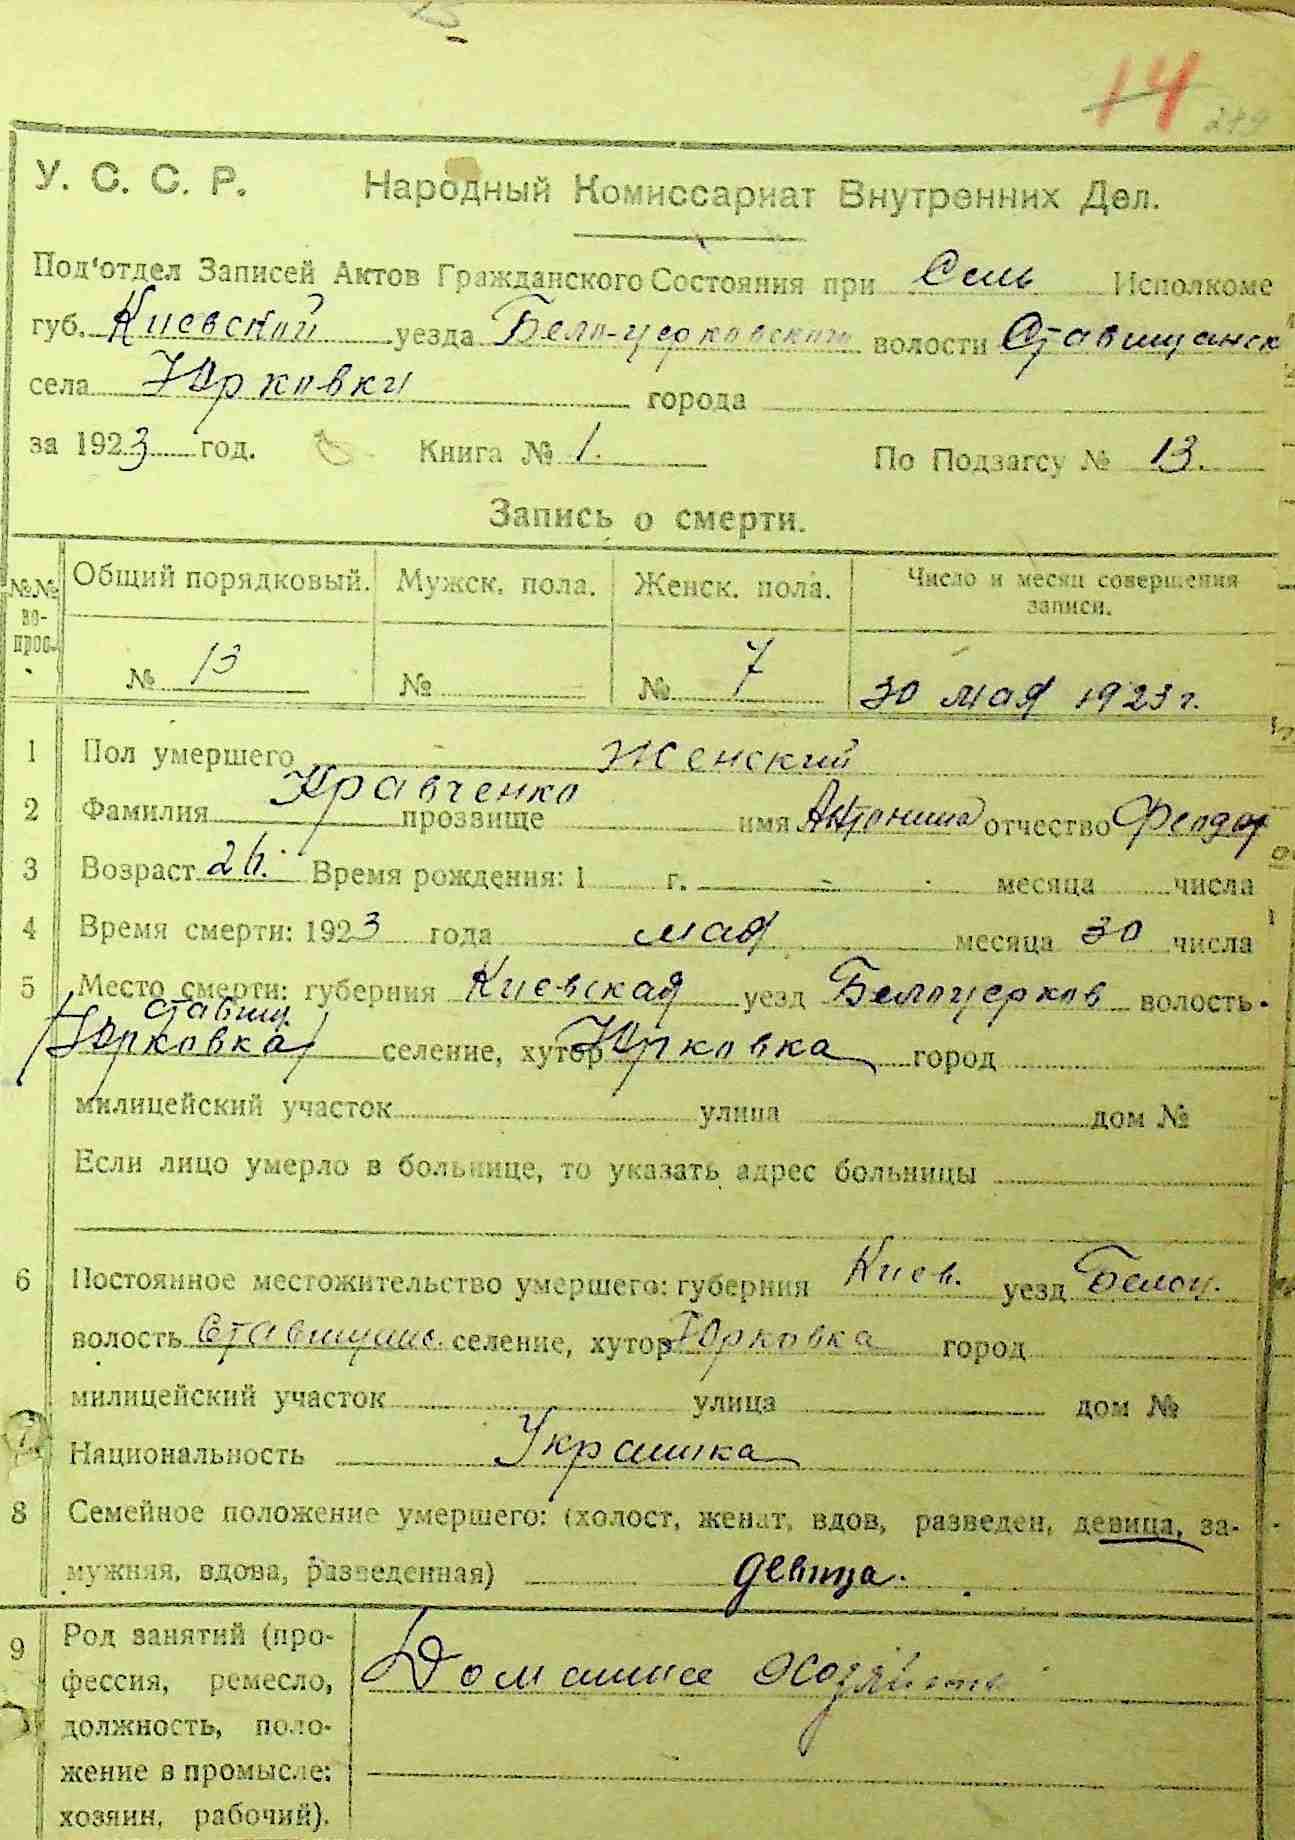 14 249
У. С. С. Р. Народный Комиссариат Внутренних Дел.
Под'отдел Записей Актов Гражданского Состояния при Сель Исполкоме
губ. Киевской уезда Бело-церковского волости Ставищанск
села Юрковки города
за 1923 год. Книга № 1. По Подзагсу № 13.
Запись о смерти.
№№ во-прос. Общий порядковый. Мужск. пола. Женск. пола. Число и месяц совершения записи.
№ 13 № № 7 30 мая 1923 г.
1 Пол умершего Женский
2 Фамилия Кравченко прозвище имя Антонина отчество Феодор
3 Возраст Время рождения: 1 г. месяца числа
4 Время смерти: 1923 года мая месяца 30 числа
5 Место смерти: губерния Киевская уезд Белоцерков волость
Ставищ.
(Юрковка) селение, хутор Юрковка город
милицейский участок улица дом №
Если лицо умерло в больнице, то указать адрес больницы
6 Постоянное местожительство умершего: губерния Киев. уезд Белоц.
волость Ставищанс. селение, хутор Юрковка город
милицейский участок улица дом №
7 Национальность Украинка
8 Семейное положение умершего: (холост, женат, вдов, разведен, девица, за-
мужняя, вдова, разведенная) девица.
9 Род занятий (про-
фессия, ремесло, Домашнее хозяйство
должность, поло-
жение в промысле:
хозяин, рабочий).